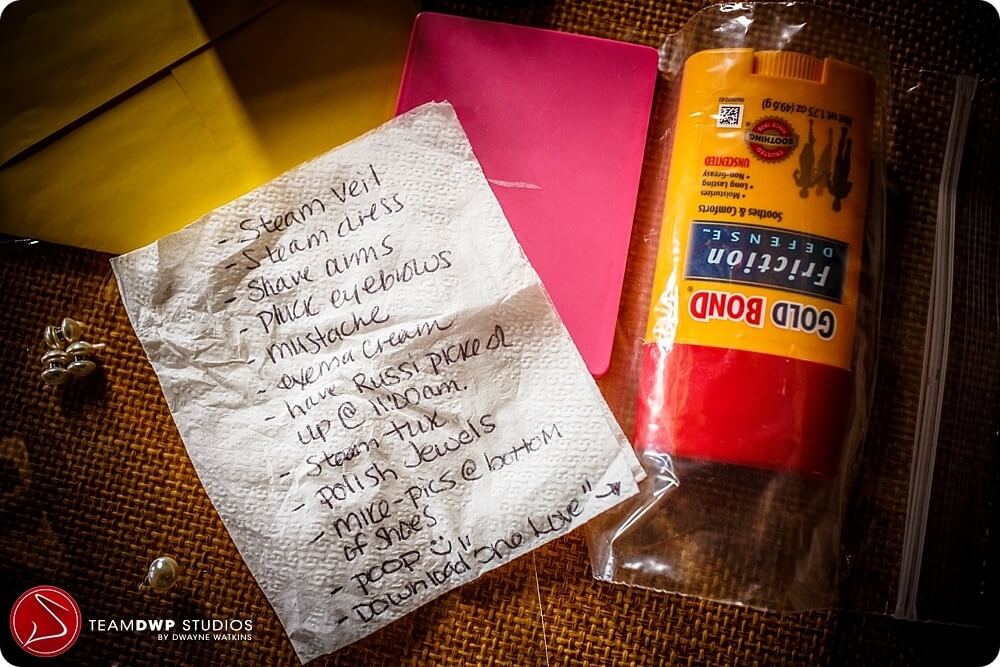 - Steam Veil
- Steam dress
- Shave arms
- Pluck eyebrows
mustache
- exema cream
- have Russi picked
up @ 11:00am.
- Steam tux
- Polish Jewels
- mike-pics @ bottom
of shoes
- poop
- Download "One Love"
GOLD BOND®
Friction
DEFENSE™
Soothes & Comforts
• Moisturizes
• Long Lasting
• Non-Greasy
UNSCENTED
SOOTHING
Net wt 1.75 oz (49.6 g)
TEAMDWP STUDIOS
BY DWAYNE WATKINS